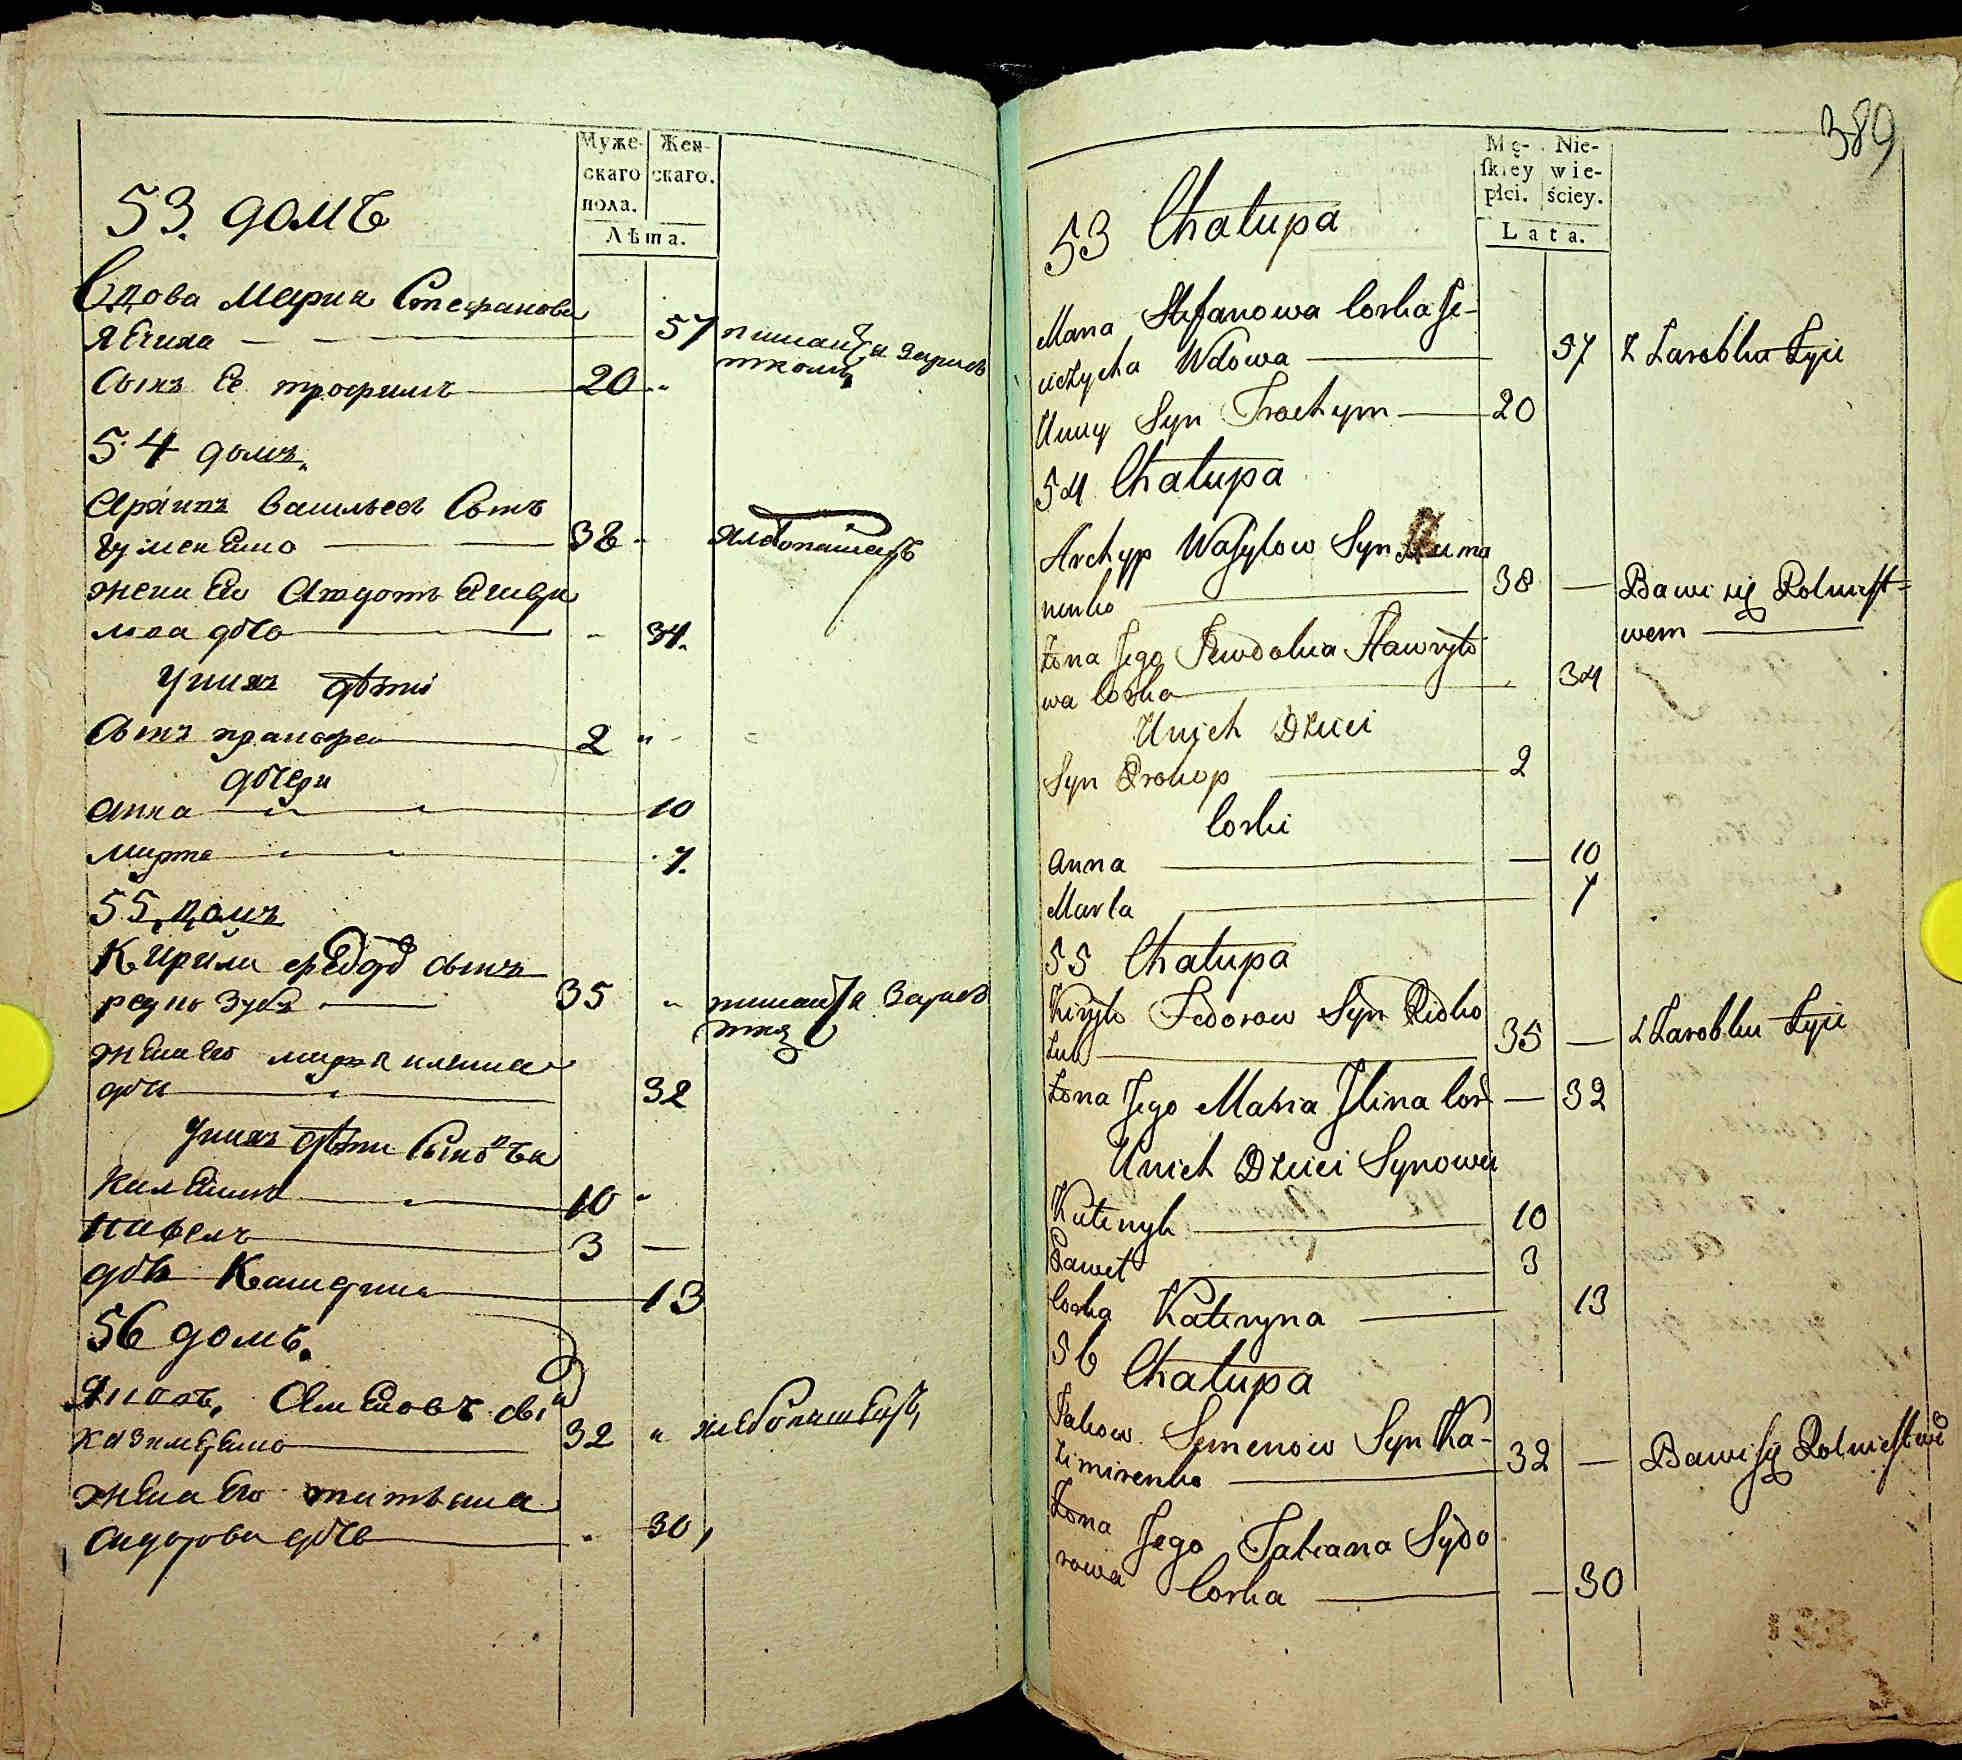 Муже-
скаго
пола.
Жен-
скаго.
Лѣта.
53. домъ
Вдова Мария Стефанова
57
Сынъ Ее трофимъ 20
54 домъ
Архипъ васильевъ Сынъ
гуменЕнко 38 хлебопашецъ
жена Его
дочь 34.
У них дѣти
Сынъ 2
дочери
анна 10
марта 7.
55 домъ
Кирила федоровъ сынъ
редкозубъ 35
жена его
дочь 32
У нихъ дѣти Сыновья
10
павелъ 3
дочь Катерина 13
56 домъ.
Яковъ, Семеновъ сынъ
казимиренко 32 хлебопашецъ
жена Его татьяна
сидорова дочь 30
389
Mę-
ſkiey
płci.
Nie-
wie-
ściey.
Lata.
53 Chałupa
Marya Stefanowa Corka Je-
Wdowa 57 z Zarobku żyie
U niey Syn Trochym 20
54 Chałupa
Archyp Wasylow Syn Huma
nenko 38 — Bawi się Rolnict-
wem
Żona Jego Jewdokia Hawryło
wa Corka 34
U nich Dzieci
Syn Prokop 2
Corki
Anna — 10
Marta 7
55 Chałupa
Kiryło Fedorow Syn Ridko
zub 35 — z Zarobku żyie
Żona Jego Maria Ilina Cor — 32
U nich Dzieci Synowie
10
Paweł 3
Corka Kateryna 13
56 Chałupa
Jakow Semenow Syn Ka-
zimirenko 32 — Bawi się Rolnictwē
Żona Jego Tatiana Sydo
rowa Corka — 30